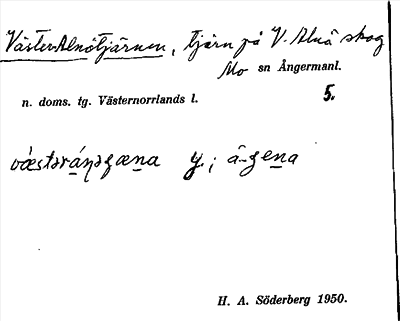 Väster-Alnötjärnen, tjärn på V. Alnö skog
Mo sn Ångermanl.
n. doms. tg. Västernorrlands l.
5.
y.;
H. A. Söderberg 1950.